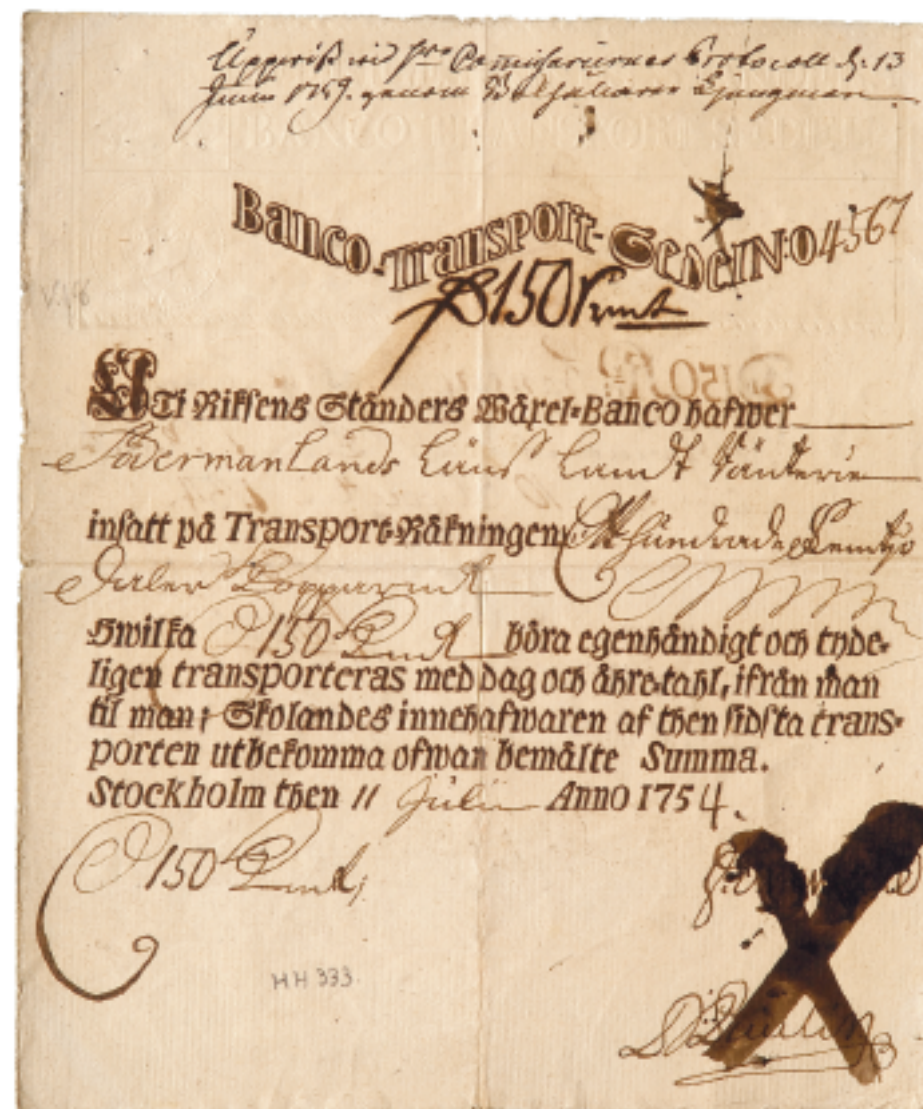 d. 13
Junii 1759. genom
Banco-Transport-Sedel N:o 4567
D 150 Kmt
UTi Riksens Ständers Wäxel-Banco hafwer
Södermanlands Läns Landt Ränterie
insatt på Transport-Räkningen Ett hundrade femtijo
Daler Kopparmt
Hwilka D 150 Kmt böra egenhändigt och tyde-
ligen transporteras med dag och åhre-tahl, ifrån man
til man; Skolandes innehafwaren af then sidsta trans-
porten utbekomma ofwan bemälte Summa.
Stockholm then 11 Julii Anno 1754.
D 150 Kmt;
HH 333.